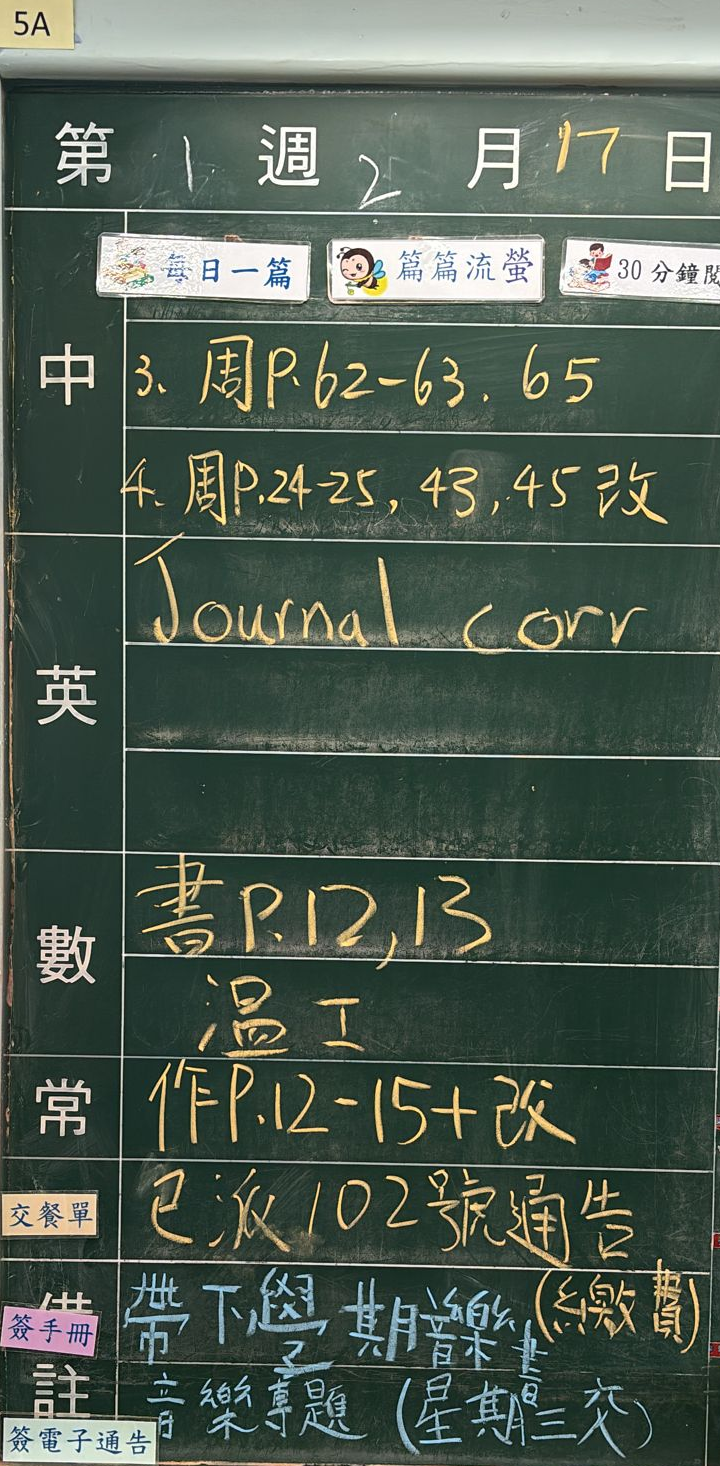 5A
第 1 週 2 月 17 日
每日一篇 篇篇流螢 30分鐘閱
中 3、周P.62-63、65
4、周P.24-25, 43, 45改
英 Journal corr
數 書P.12, 13
溫工
常 作P.12-15+改
交餐單 已派102號通告
(繳費)
簽手冊 備 帶下學期音樂書
註 音樂專題 (星期三交)
簽電子通告